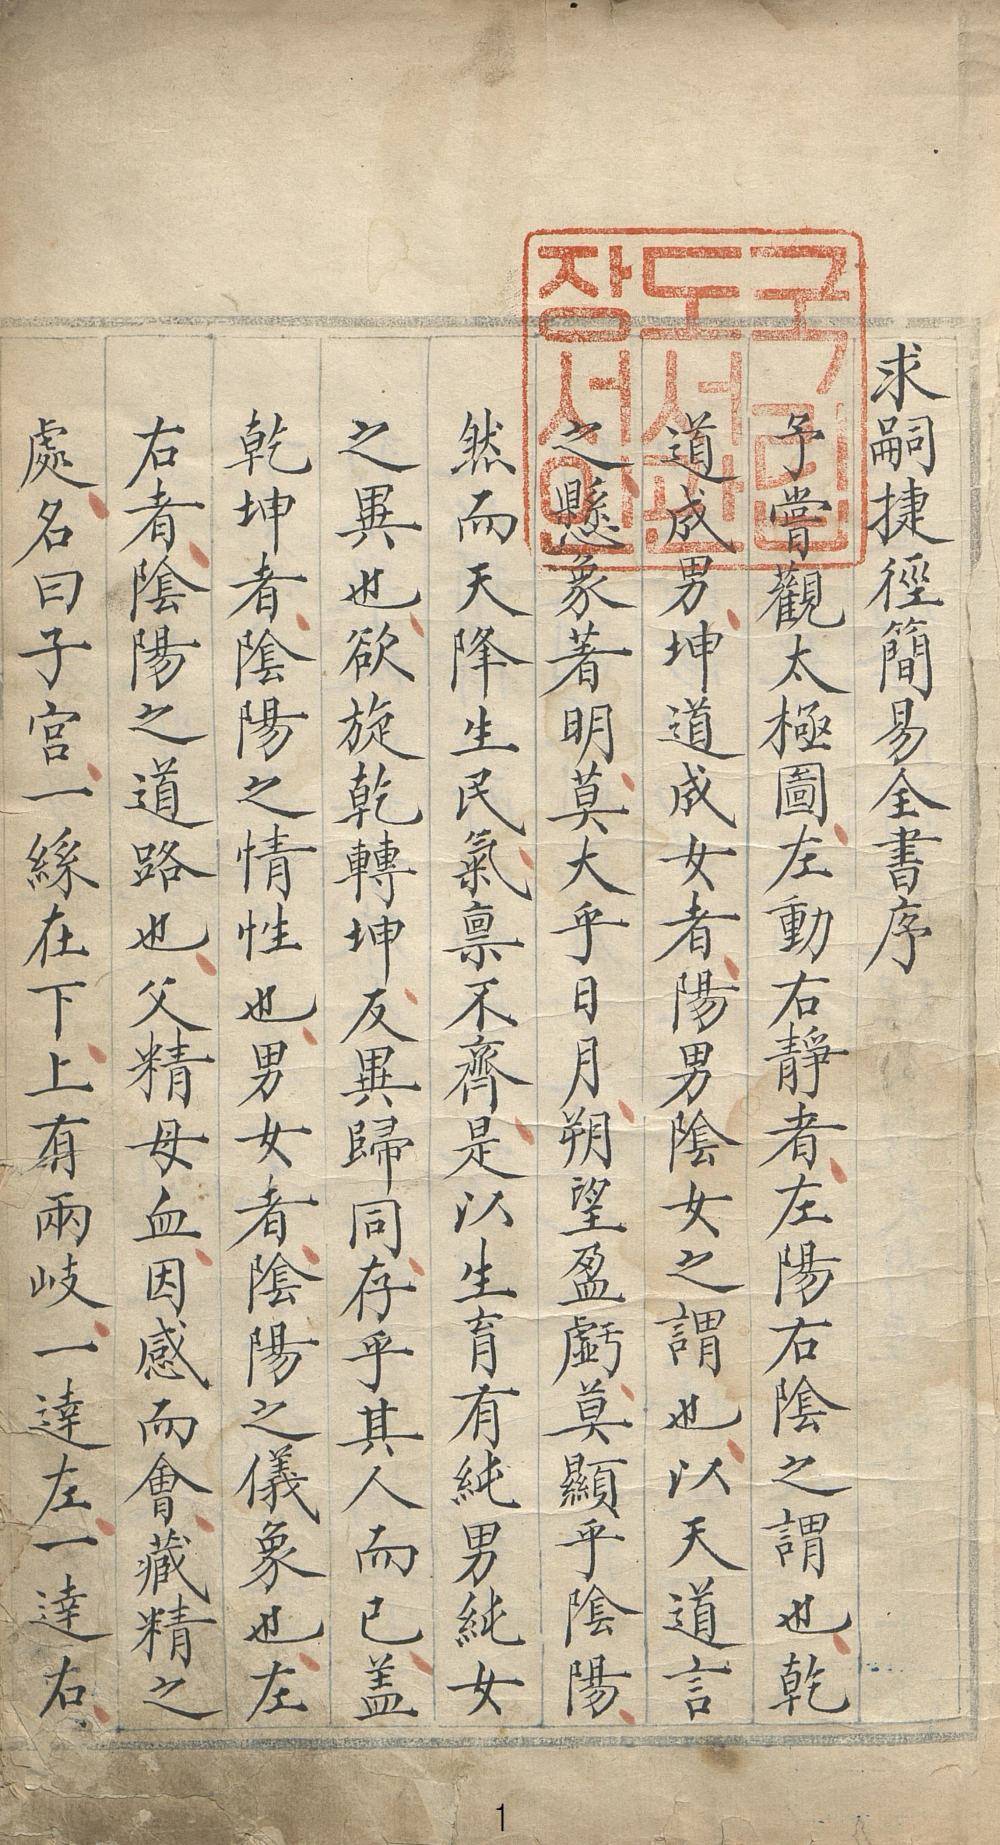 求嗣捷徑簡易全書序
予嘗觀太極圖左動右靜者左陽右陰之謂也乾
道成男坤道成女者陽男陰女之謂也以天道言
之懸象著明莫大乎日月朔望盈虧莫顯乎陰陽
然而天降生民氣禀不齊是以生育有純男純女
之異也欲旋乾轉坤反異歸同存乎其人而已盖
乾坤者陰陽之情性也男女者陰陽之儀象也左
右者陰陽之道路也父精母血因感而會藏精之
處名曰子宮一絲在下上有兩岐一達左一達右
국립
도서관
장서인
1